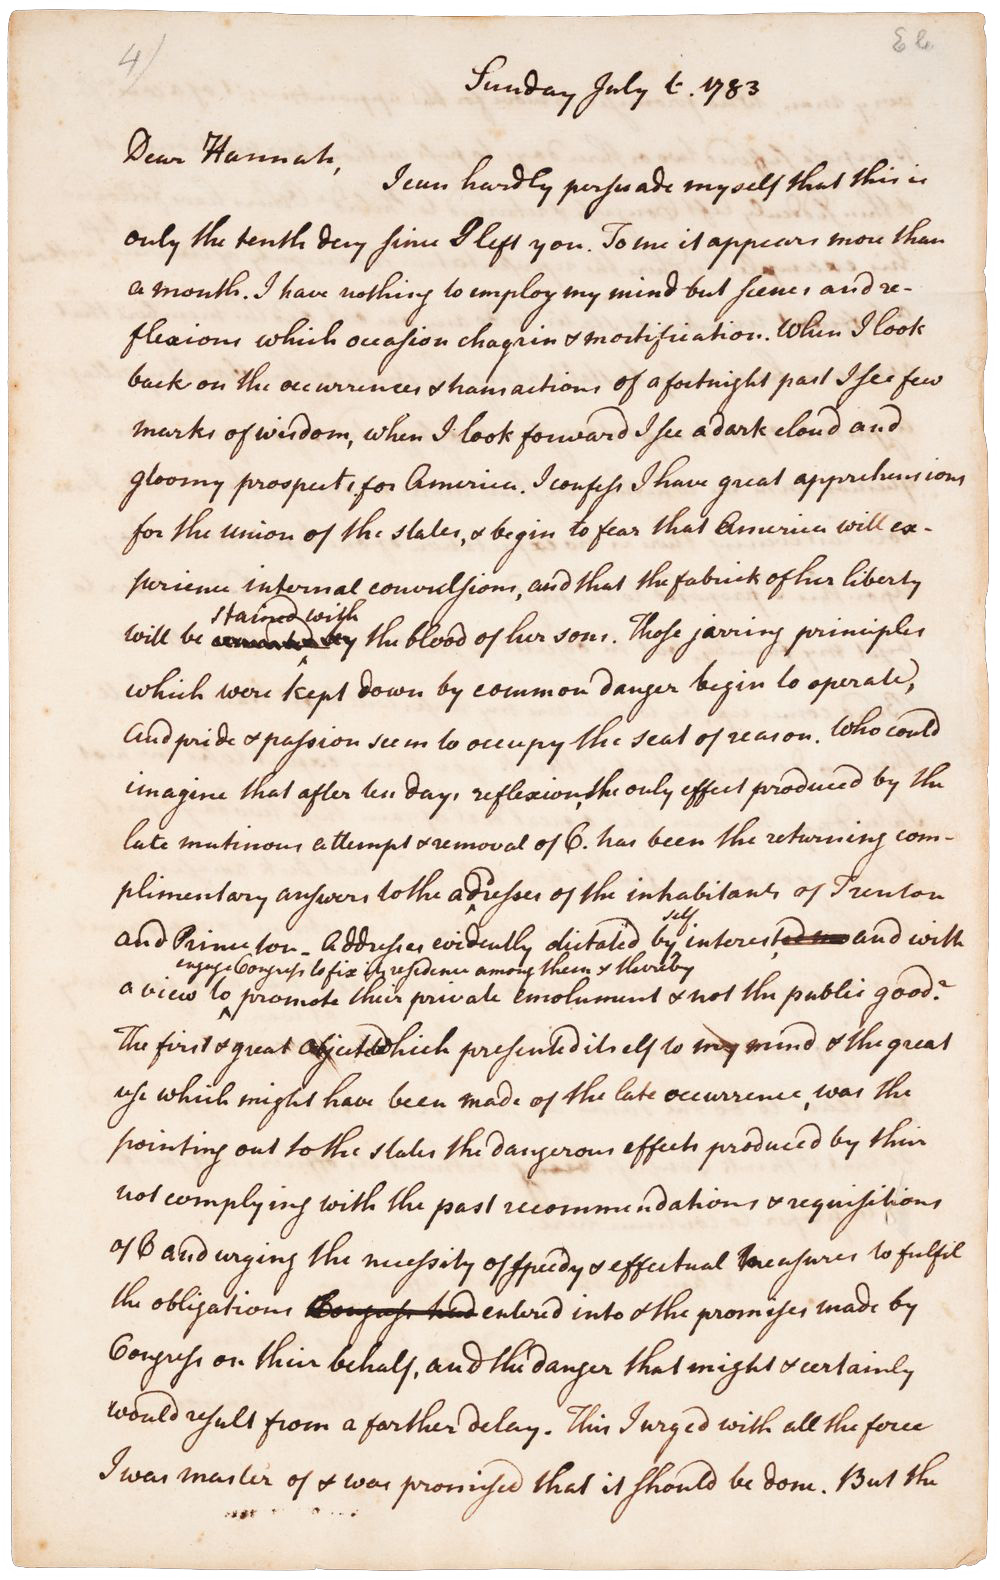 4)
E
Sunday July 6. 1783
Dear Hannah,
I can hardly persuade myself that this is
only the tenth day since I left you. To me it appears more than
a month. I have nothing to employ my mind but scenes and re-
flexions which occasion chagrin & mortification. When I look
back on the occurrences & transactions of a fortnight past I see few
marks of wisdom, when I look forward I see a dark cloud and
gloomy prospects for America. I confess I have great apprehensions
for the union of the states, & begin to fear that America will ex-
perience internal convulsions, and that the fabrick of her liberty
stained with
will be cemented by the blood of her sons. Those jarring principles
which were kept down by common danger begin to operate,
And pride & passion seem to occupy the seat of reason. Who could
imagine that after ten days reflexion, the only effect produced by the
late mutinous attempt & removal of C. has been the returning com-
plimentary answers to the adresses of the inhabitants of Trenton
self
and Princeton - Addresses evidently dictated by interested and with
engage Congress to fix its residence among them & thereby
a view to promote their private emolument & not the public good?
The first & great object which presented itself to my mind & the great
use which might have been made of the late occurrence, was the
pointing out to the states the dangerous effects produced by their
not complying with the past recommendations & requisitions
of C and urging the necessity of speedy & effectual measures to fulfil
the obligations Congress had entered into & the promises made by
Congress on their behalf, and the danger that might & certainly
would result from a farther delay. This I urged with all the force
I was master of & was promised that it should be done. But the